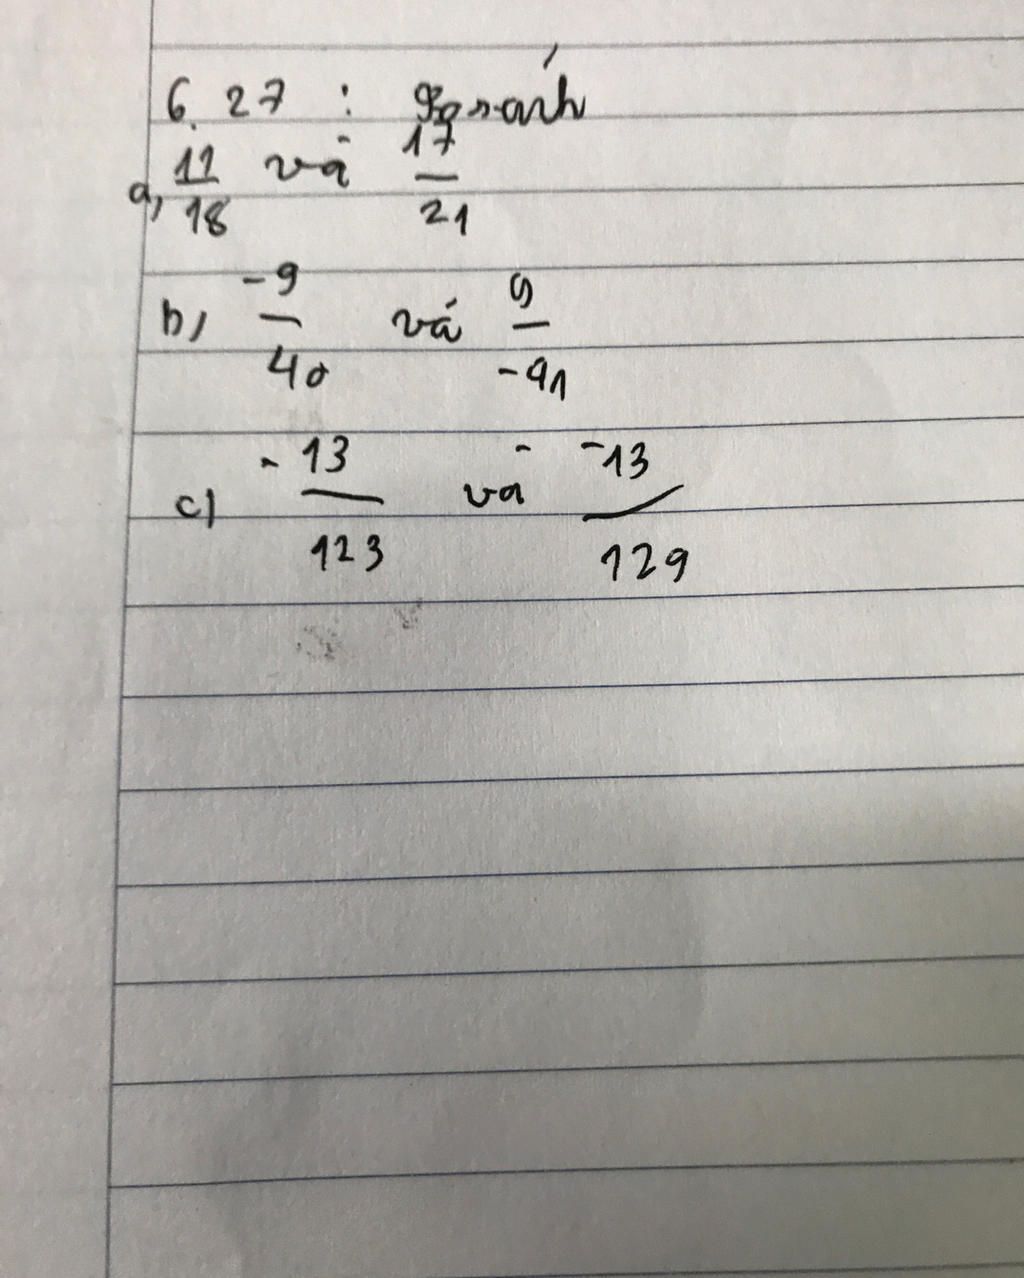 6.27 : So sánh
a, 11/18 và 17/21
b, -9/40 vá 9/-41
c) -13/123 và -13/129